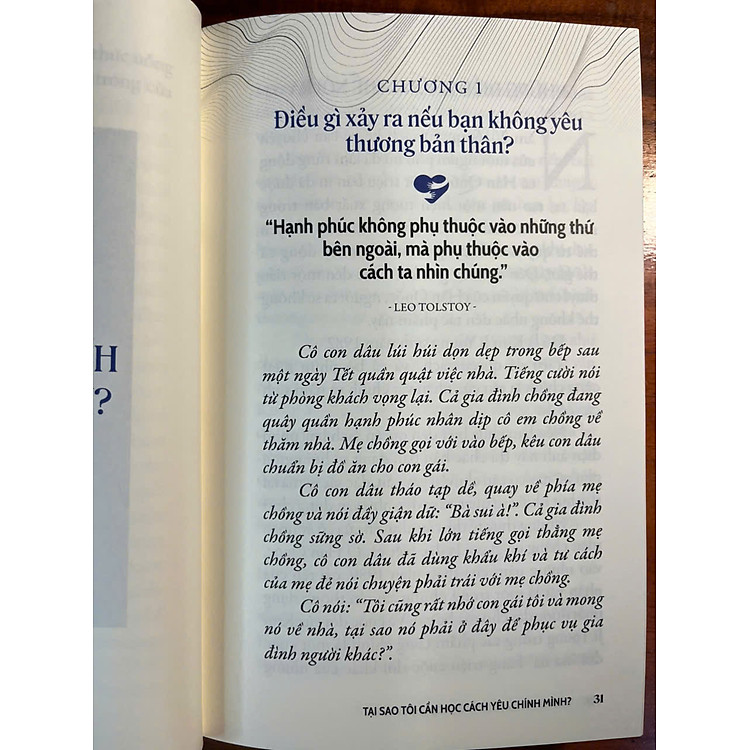 CHƯƠNG 1
Điều gì xảy ra nếu bạn không yêu
thương bản thân?
“Hạnh phúc không phụ thuộc vào những thứ
bên ngoài, mà phụ thuộc vào
cách ta nhìn chúng.”
- LEO TOLSTOY -
Cô con dâu lúi húi dọn dẹp trong bếp sau
một ngày Tết quần quật việc nhà. Tiếng cười nói
từ phòng khách vọng lại. Cả gia đình chồng đang
quây quần hạnh phúc nhân dịp cô em chồng về
thăm nhà. Mẹ chồng gọi với vào bếp, kêu con dâu
chuẩn bị đồ ăn cho con gái.
Cô con dâu tháo tạp dề, quay về phía mẹ
chồng và nói đầy giận dữ: “Bà sui à!”. Cả gia đình
chồng sững sờ. Sau khi lớn tiếng gọi thẳng mẹ
chồng, cô con dâu đã dùng khẩu khí và tư cách
của mẹ đẻ nói chuyện phải trái với mẹ chồng.
Cô nói: “Tôi cũng rất nhớ con gái tôi và mong
nó về nhà, tại sao nó phải ở đây để phục vụ gia
đình người khác?”.
TẠI SAO TÔI CẦN HỌC CÁCH YÊU CHÍNH MÌNH? 31
H
?